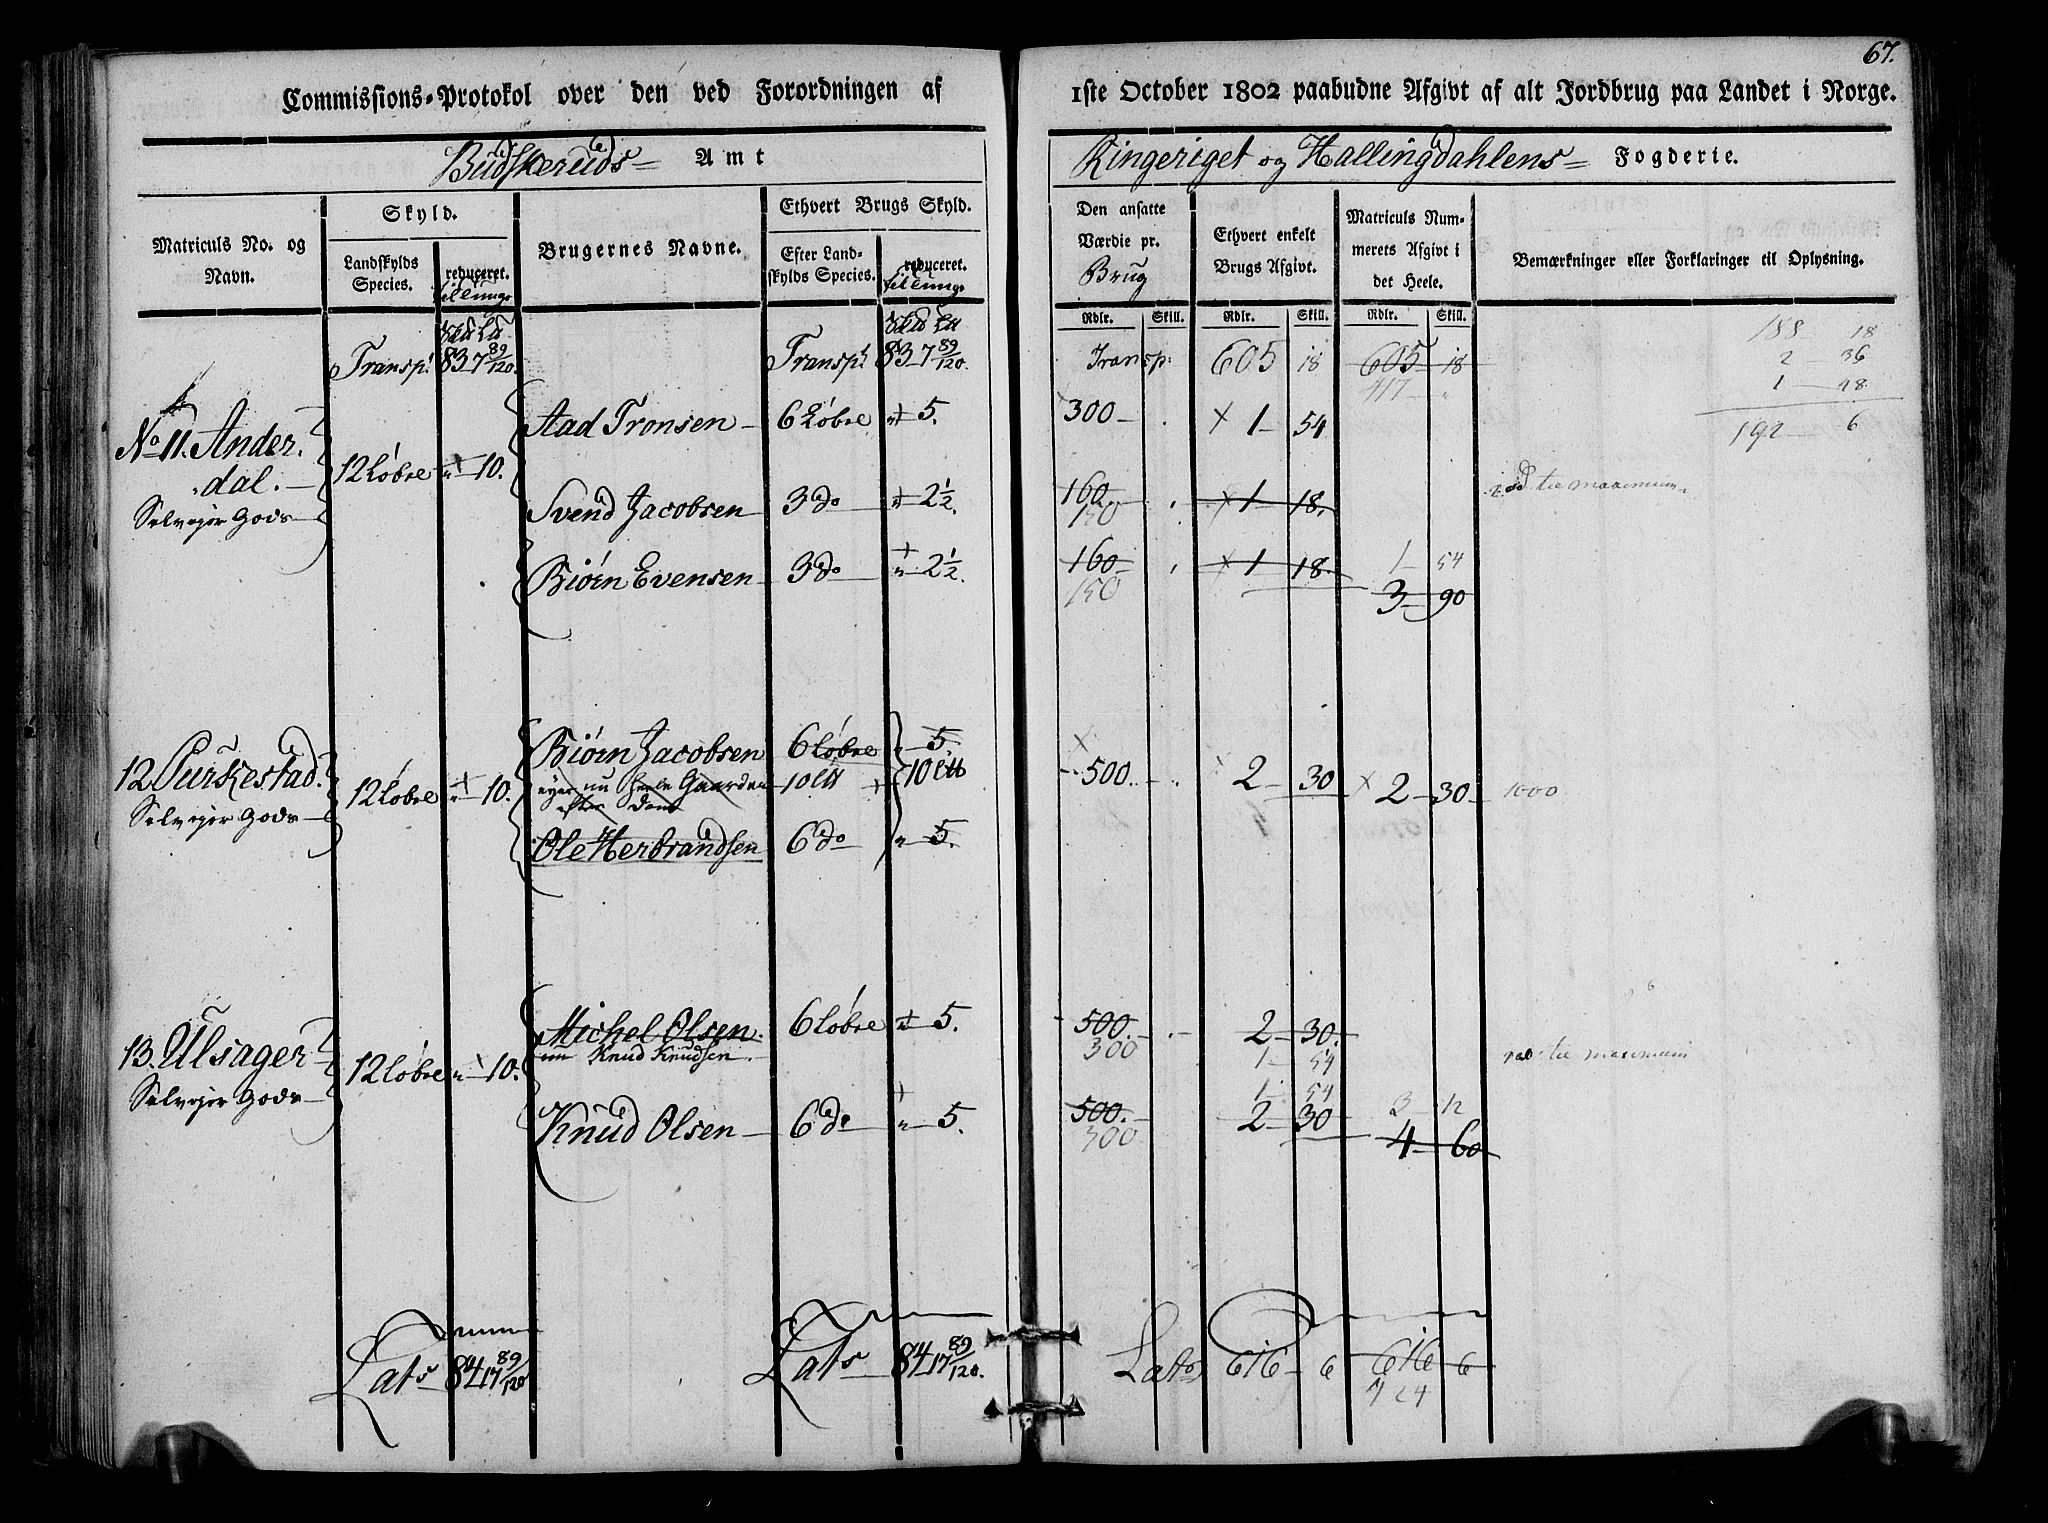 67.
Commissions-Protokol over den ved Forordningen af 1ste October 1802 paabudne Afgivt af alt Jordbrug paa Landet i Norge.
Budskeruds Amt Ringeriget og Hallingdahlens Fogderie.
Matriculs No. og Navn.
Skyld.
Landskylds Species.
reduceret.
Brugernes Navne.
Ethvert Brugs Skyld.
Efter Landskylds Species.
reduceret.
Den ansatte Værdie pr. Brug
Ethvert enkelt Brugs Afgivt.
Matriculs Nummerets Afgivt i det Heele.
Bemærkninger eller Forklaringer til Oplysning.
Rdlr. Skill. Rdlr. Skill. Rdlr. Skill.
Transp: 83 7 89/120. Transp: 83 7 89/120. Transp: 605 18 605 18
417
188 18
2 36
1 48
192 6
No 11. Anderdal. 12 Løbse 10.
Selvejer Gods
Aad Tronsen 6 Løbse 5. 300 1 54
Svend Jacobsen 3 do 2 1/2. 160 1 18.
150
til maximum
Biørn Evensen 3 do 2 1/2. 160 1 18. 1 54
150 3 90
12 Purkestad. 12 Løbse 10.
Selvejer Gods
Biørn Jacobsen 6 Løbse 5.
ejer nu heele Gaarden 10 10
500. 2 30 2 30 1000
Ole Herbrandsen 6 do 5.
13. Ulsager 12 Løbse 10.
Selvejer Gods
Michel Olsen 6 Løbse 5. 500. 2 30.
nu Knud Knudsen 300 1 54
til maximum
1 54
Knud Olsen 6 do 5. 500. 2 30 3 12
300 4 60
Lats 84 17 89/120 Lats 84 17 89/120. Lats 616 6 616 6
424